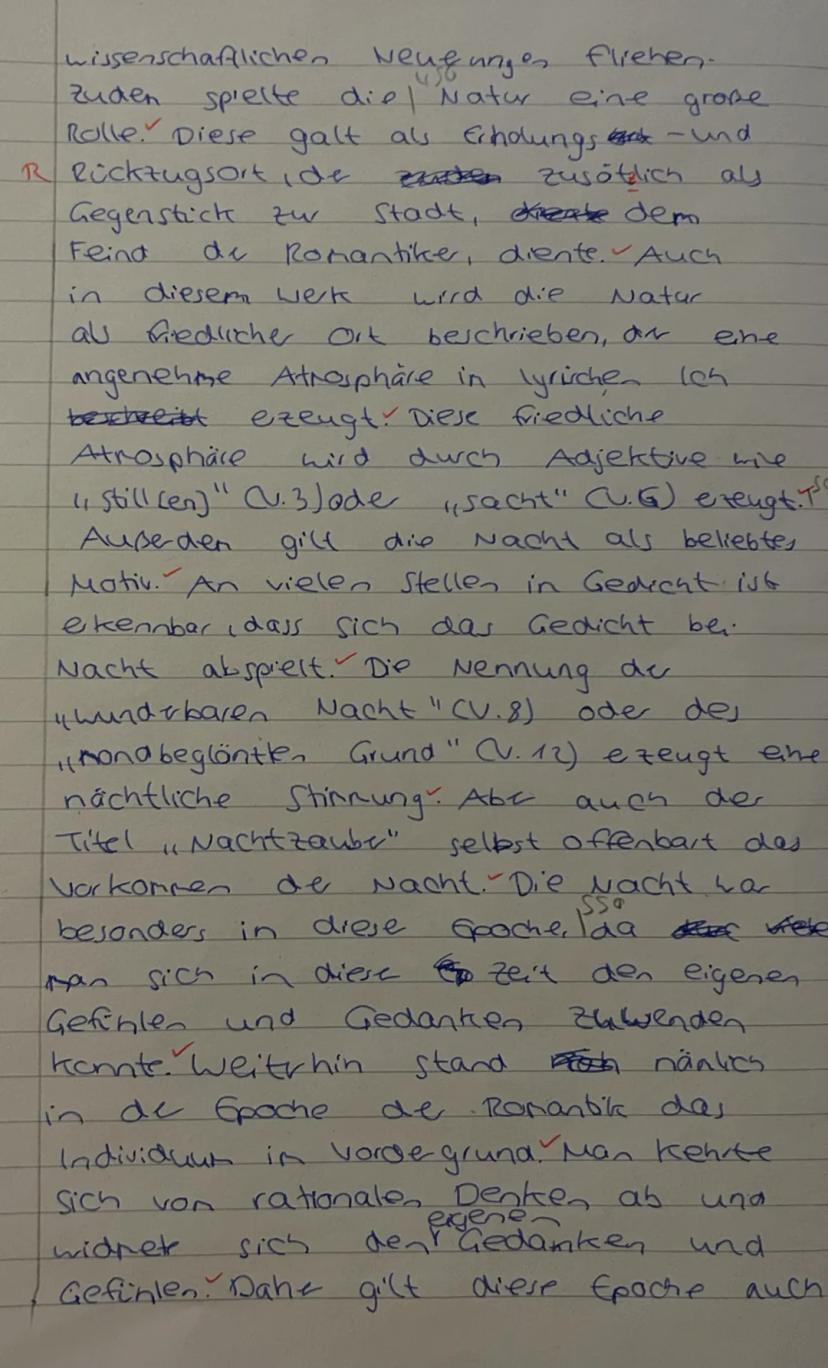 wissenschaftlichen Neuerungen fliehen.
Zudem spielte die | Natur eine große
450
Rolle. Diese galt als Erholungs -und
R Rückzugsort, der zusätzlich als
Gegenstück zur Stadt, dem
Feind der Romantiker, diente. Auch
in diesem Werk wird die Natur
als friedlicher Ort beschrieben, der eine
angenehme Atmosphäre im lyrischen Ich
erzeugt. Diese friedliche
Atmosphäre wird durch Adjektive wie
„still[en]" (V.3) oder „sacht" (V.6) erzeugt.
Außerdem gilt die Nacht als beliebtes
Motiv. An vielen Stellen im Gedicht ist
erkennbar, dass sich das Gedicht bei
Nacht abspielt. Die Nennung der
„wunderbaren Nacht" (V.8) oder des
„mondbeglänzten Grund" (V.12) erzeugt eine
nächtliche Stimmung. Aber auch der
Titel „Nachtzauber" selbst offenbart das
Vorkommen der Nacht. Die Nacht war
550
besonders in dieser Epoche, | da
man sich in dieser Zeit den eigenen
Gefühlen und Gedanken zuwenden
konnte. Weiterhin stand nämlich
in der Epoche der Romantik das
Individuum im Vordergrund. Man kehrte
sich vom rationalen Denken ab und
widmet sich den eigenen Gedanken und
Gefühlen. Daher gilt diese Epoche auch